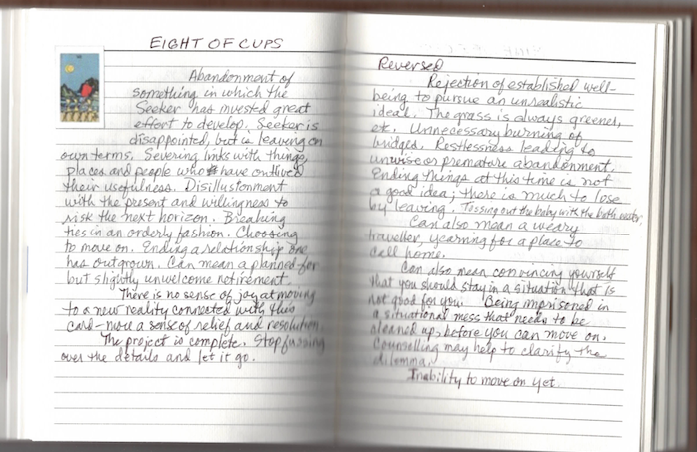 EIGHT OF CUPS
Abandonment of
something in which the
Seeker has invested great
effort to develop. Seeker is
disappointed, but is leaving on
own terms. Severing links with things,
places and people who have outlived
their usefulness. Disillusionment
with the present and willingness to
risk the next horizon. Breaking
ties in an orderly fashion. Choosing
to move on. Ending a relationship one
has outgrown. Can mean a planned for
but slightly unwelcome retirement.
There is no sense of joy at moving
to a new reality connected with this
card - more a sense of relief and resolution.
The project is complete. Stop fussing
over the details and let it go.
Reversed
Rejection of established well-
being to pursue an unrealistic
ideal. The grass is always greener,
etc. Unnecessary burning of
bridges. Restlessness leading to
unwise or premature abandonment.
Ending things at this time is not
a good idea; there is much to lose
by leaving. Tossing out the baby with the bath water.
Can also mean a weary
traveller yearning for a place to
call home.
Can also mean convincing yourself
that you should stay in a situation that is
not good for you. Being imprisoned in
a situational mess that needs to be
cleaned up, before you can move on.
Counselling may help to clarify the
dilemma.
Inability to move on yet.